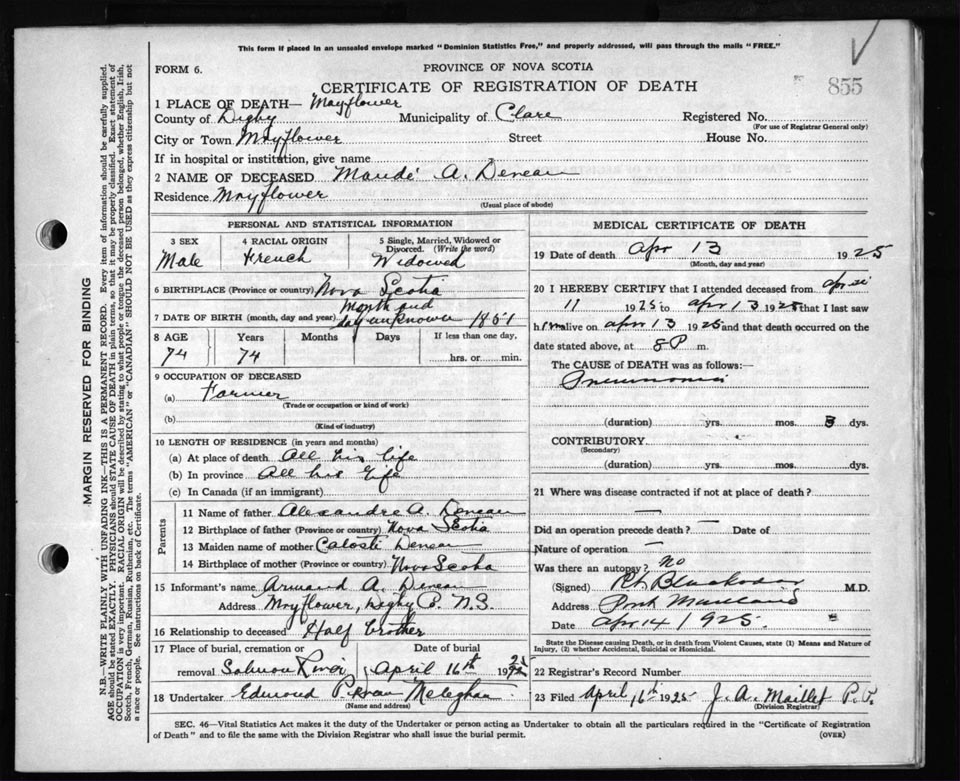 This form if placed in an unsealed envelope marked "Dominion Statistics Free," and properly addressed, will pass through the mails "FREE."
FORM 6.
PROVINCE OF NOVA SCOTIA
CERTIFICATE OF REGISTRATION OF DEATH
855
1 PLACE OF DEATH— Mayflower
County of Digby Municipality of Clare Registered No.
(For use of Registrar General only)
City or Town Mayflower Street House No.
If in hospital or institution, give name
2 NAME OF DECEASED Mandé A. Deneau
Residence Mayflower
(Usual place of abode)
PERSONAL AND STATISTICAL INFORMATION
3 SEX Male
4 RACIAL ORIGIN French
5 Single, Married, Widowed or Divorced. (Write the word) Widowed
6 BIRTHPLACE (Province or country) Nova Scotia
7 DATE OF BIRTH (month, day and year) Month and day unknown 1851
8 AGE Years Months Days If less than one day,
74 74 hrs. or min.
9 OCCUPATION OF DECEASED
(a) Farmer
(Trade or occupation or kind of work)
(b)
(Kind of industry)
10 LENGTH OF RESIDENCE (in years and months)
(a) At place of death All his life
(b) In province All his life
(c) In Canada (if an immigrant)
Parents
11 Name of father Alexandre A. Deneau
12 Birthplace of father (Province or country) Nova Scotia
13 Maiden name of mother Deneau
14 Birthplace of mother (Province or country) Nova Scotia
15 Informant's name Armand A. Deneau
Address Mayflower, Digby Co. N.S.
16 Relationship to deceased Half brother
17 Place of burial, cremation or Date of burial
removal Salmon River April 16th 1925
18 Undertaker Edmond Meleghan
(Name and address)
MEDICAL CERTIFICATE OF DEATH
19 Date of death Apr 13 1925
(Month, day and year)
20 I HEREBY CERTIFY that I attended deceased from April
11 1925 to Apr 13 1925 that I last saw
him alive on Apr 13 1925 and that death occurred on the
date stated above, at 8 P m.
The CAUSE of DEATH was as follows:—
Pneumonia
(duration) yrs. mos. 3 dys.
CONTRIBUTORY
(Secondary)
(duration) yrs. mos. dys.
21 Where was disease contracted if not at place of death?
—
Did an operation precede death? — Date of
Nature of operation —
Was there an autopsy? No
(Signed) Blackadar M.D.
Address Port Maitland
Date Apr 14 1925.
State the Disease causing Death, or in death from Violent Causes, state (1) Means and Nature of
Injury, (2) whether Accidental, Suicidal or Homicidal.
22 Registrar's Record Number
23 Filed April 16th 1925 J. A. Maillet P. P.
(Division Registrar)
SEC. 46—Vital Statistics Act makes it the duty of the Undertaker or person acting as Undertaker to obtain all the particulars required in the "Certificate of Registration
of Death" and to file the same with the Division Registrar who shall issue the burial permit.
(OVER)
MARGIN RESERVED FOR BINDING
N.B.—WRITE PLAINLY WITH UNFADING INK—THIS IS A PERMANENT RECORD. Every item of information should be carefully supplied.
AGE should be stated EXACTLY. PHYSICIANS should STATE CAUSE OF DEATH in plain terms, so that it may be properly classified. Exact statement of
OCCUPATION is very important. RACIAL ORIGIN will be described by stating to what people or tongue the deceased person belonged, whether English, Irish,
Scotch, French, German, Russian, Ruthenian, etc. The terms "AMERICAN" or "CANADIAN" SHOULD NOT BE USED as they express citizenship but not
a race or people. See instructions on back of Certificate.